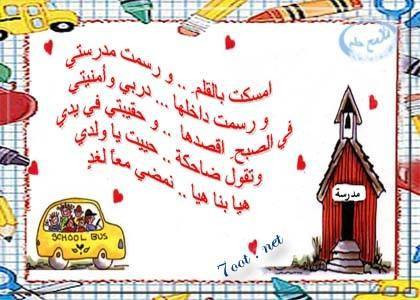 امسكت بالقلم .. و رسمت مدرستي
و رسمت داخلها ... دربي وأمنيتي
في الصبح اقصدها .. و حقيبتي في يدي
وتقول ضاحكة .. حييت يا ولدي
هيا بنا هيا .. نمضي معاً لغدٍ
مدرسة
SCHOOL BUS
7oot.net